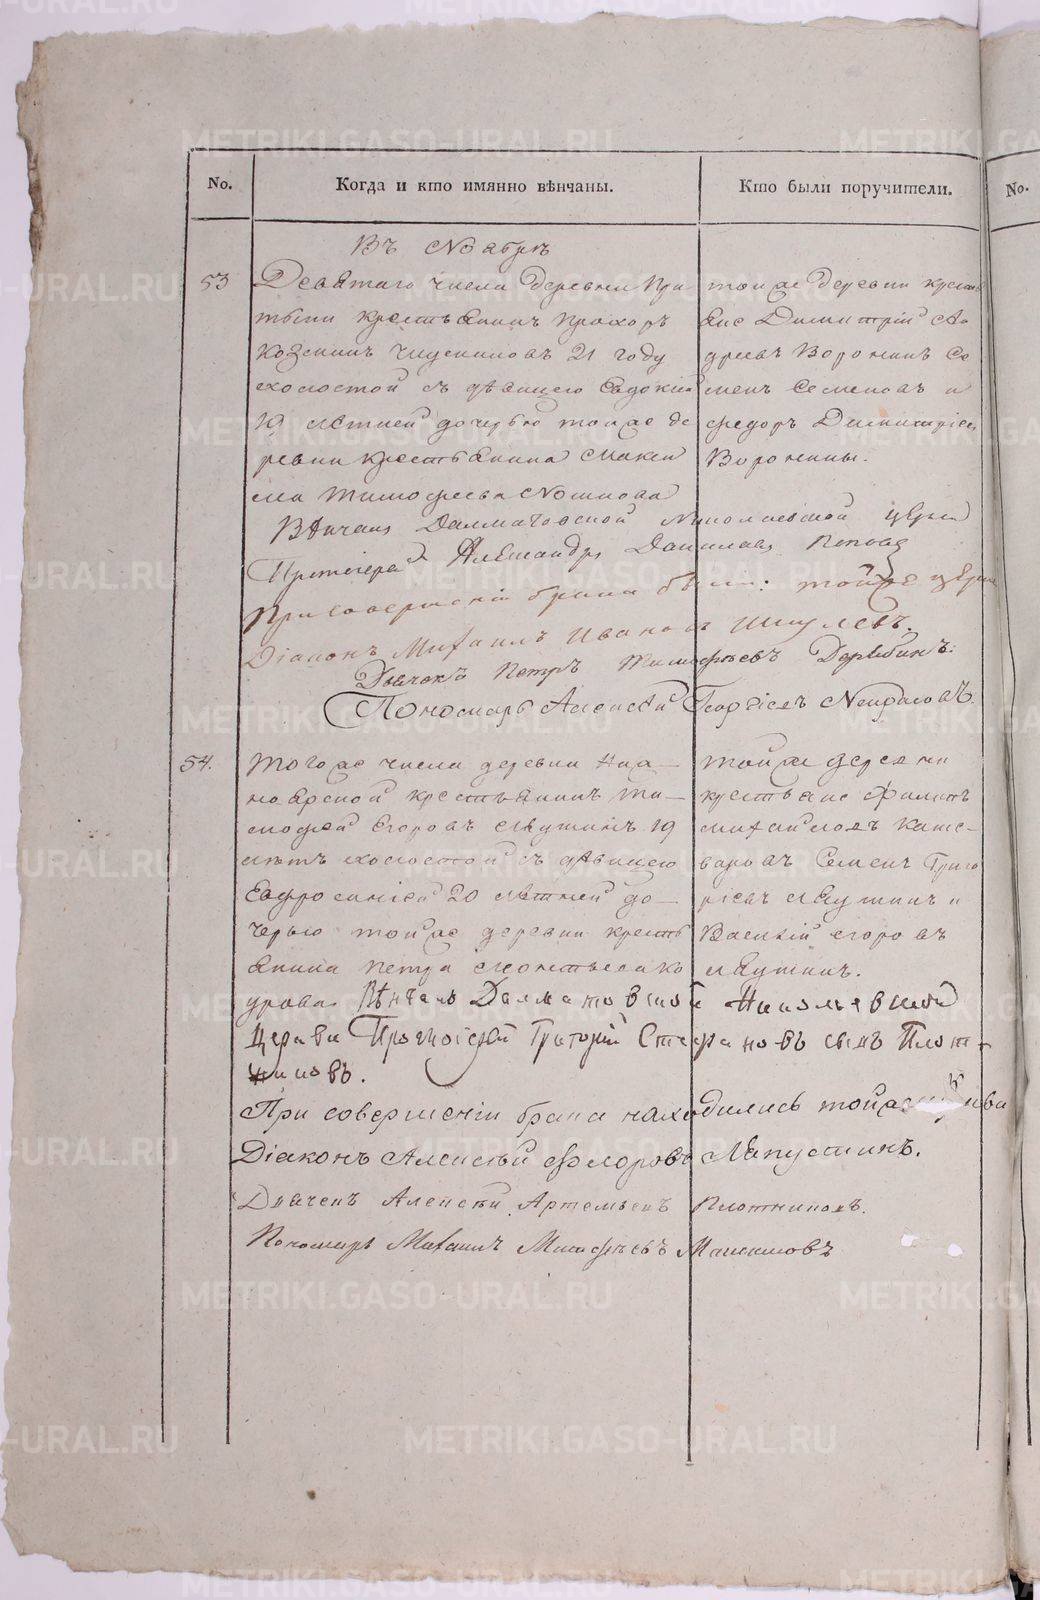 No.
Когда и кто имянно вѣнчаны.
Кто были поручители.
No.
Въ Ноабрѣ
53
Девѣтаго числа деревни При
тыки крестьѣнинъ Прохоръ
Козминъ 21 году
холостой съ дѣвицею Евдокией
19 лѣтней дочерью тойже де
ревни крестьѣнина Макси
ма Тимофеева
тойже деревни кресть
ѣне Димитрiй Ан
дреевъ Воронинъ Се
менъ Семеновъ и
Федоръ Димитрiевъ
Воронины.
Вѣнчалъ Далматовской Николаевской церкви
Протоiерей Александръ Даниловъ Поповъ
При совершенiи брака были: тойже церкви
Дiаконъ Михаилъ Ивановъ Шишулевъ.
Дьячокъ Петръ Тимофѣевъ Дерябинъ:
Пономарь Алексѣй Георгiевъ Некрасовъ.
54.
Тогоже числа деревни
крестьѣнинъ Ти-
мофей Егоровъ Лѣутинъ 19
лѣтъ холостой съ дѣвицею
Евфросинiей 20 лѣтней до-
черью тойже деревни кресть
ѣнина Петра
урова.
тойже деревни
крестьѣне Филипъ
Михайловъ
Семенъ Григо
рiевъ Лѣутинъ и
Василiй Егоровъ
Лѣутинъ.
Вѣнчалъ Далматовской Николаевской
Церкви Протоiерей Григорiй Стефановъ сынъ Плот-
никовъ.
При совершенiи брака находились тойже церкви
Дiаконъ Алексѣй Ѳедоровъ Лапустинъ.
Дьячекъ Алексѣй Артемьевъ Плотниковъ.
Пономарь Михаилъ Тимофѣевъ
METRIKI.GASO-URAL.RU